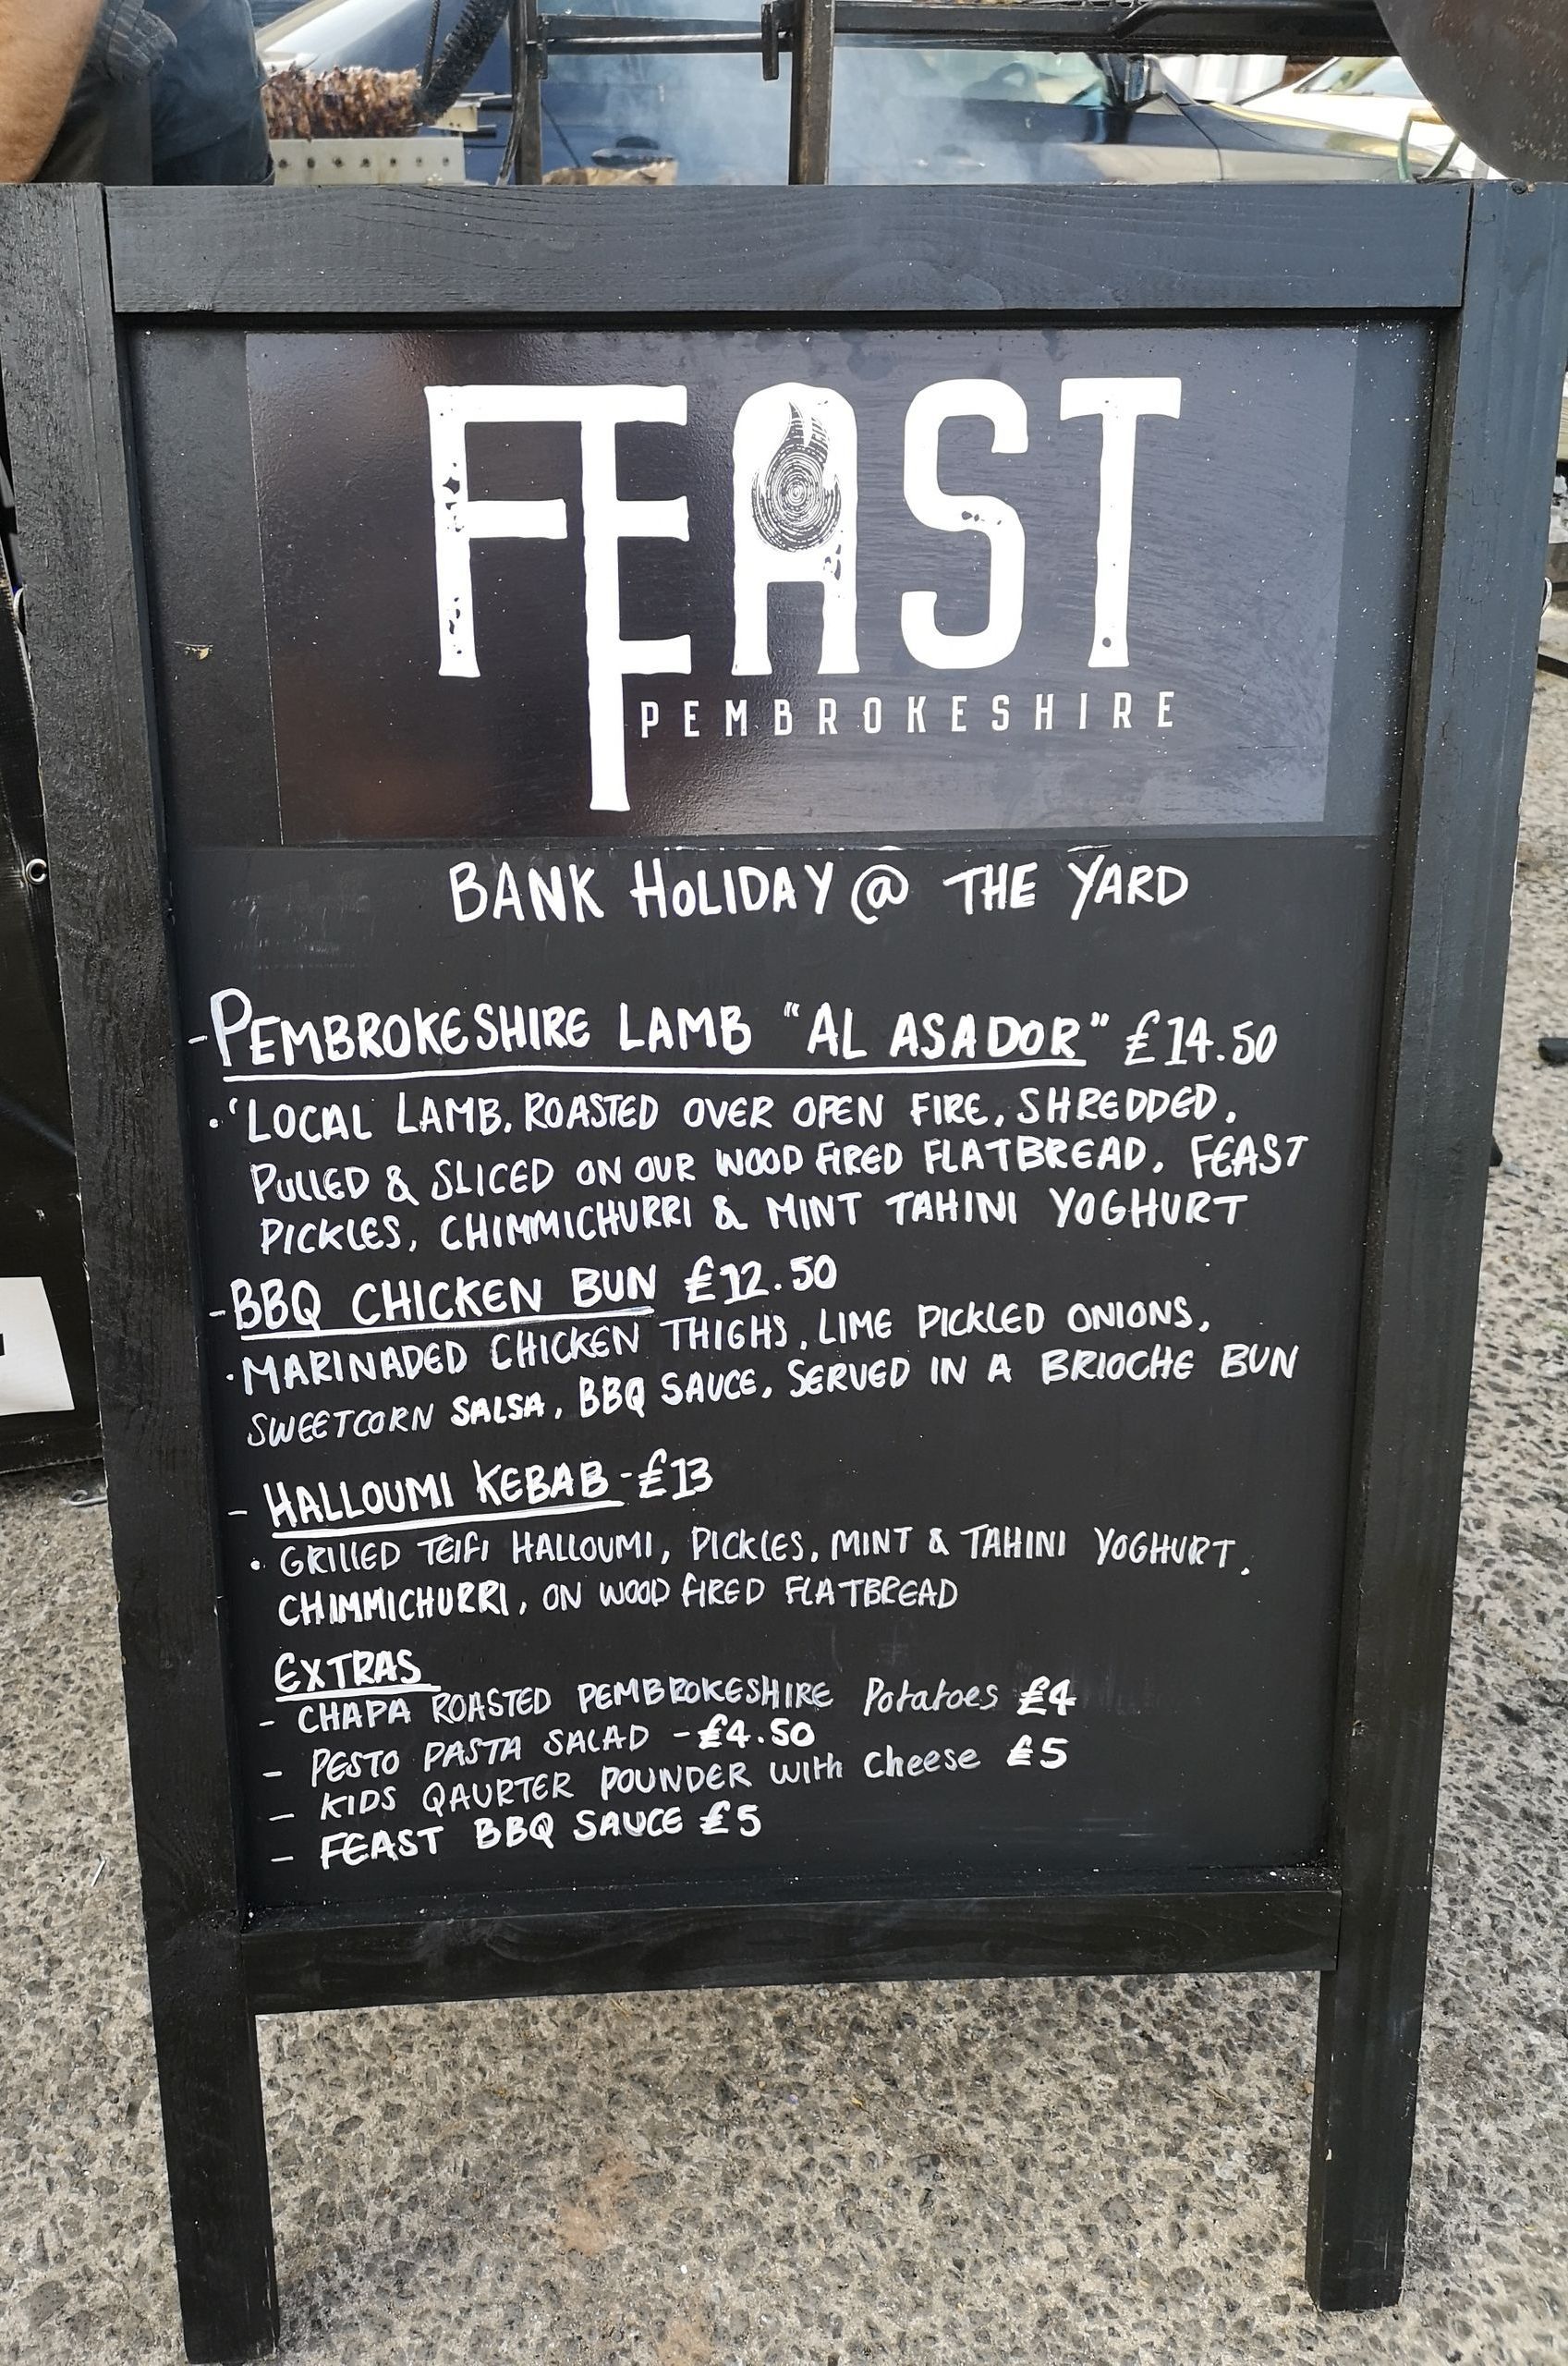 FEAST
PEMBROKESHIRE
BANK HOLIDAY @ THE YARD
- PEMBROKESHIRE LAMB "AL ASADOR" £14.50
· 'LOCAL LAMB, ROASTED OVER OPEN FIRE, SHREDDED,
PULLED & SLICED ON OUR WOOD FIRED FLATBREAD, FEAST
PICKLES, CHIMMICHURRI & MINT TAHINI YOGHURT
- BBQ CHICKEN BUN £12.50
· MARINADED CHICKEN THIGHS, LIME PICKLED ONIONS,
SWEETCORN SALSA, BBQ SAUCE, SERVED IN A BRIOCHE BUN
- HALLOUMI KEBAB - £13
· GRILLED TEIFI HALLOUMI, PICKLES, MINT & TAHINI YOGHURT,
CHIMMICHURRI, ON WOOD FIRED FLATBREAD
EXTRAS
- CHAPA ROASTED PEMBROKESHIRE Potatoes £4
- PESTO PASTA SALAD - £4.50
- KIDS QAURTER POUNDER with Cheese £5
- FEAST BBQ SAUCE £5